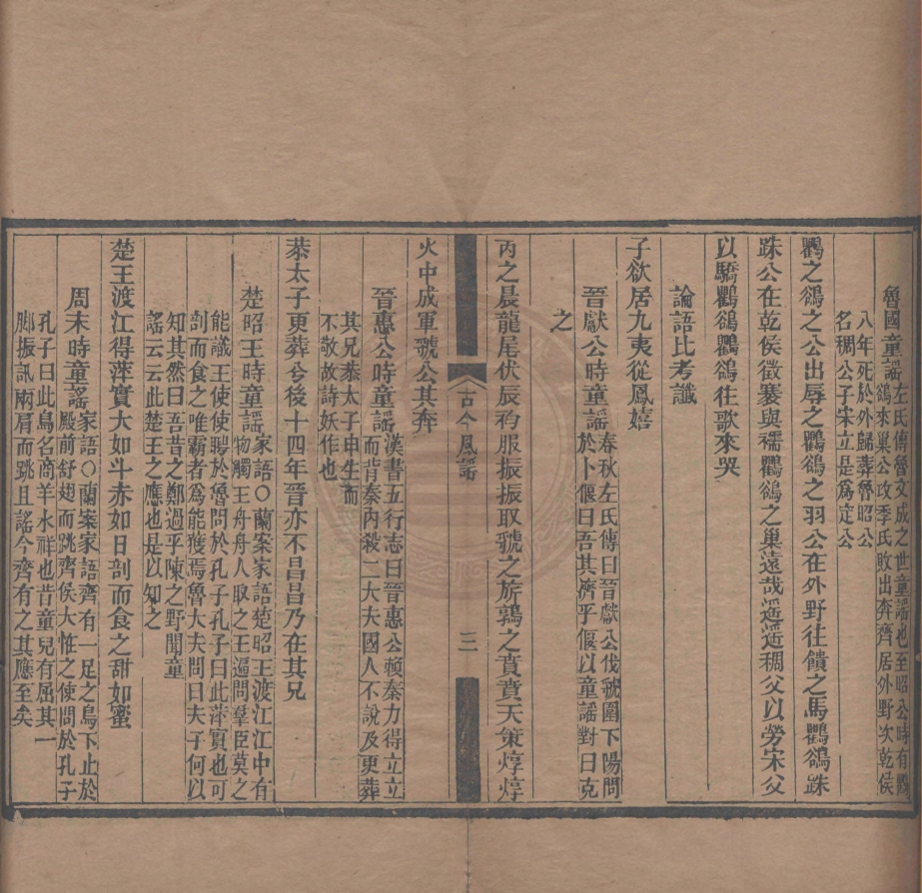 魯國童謠左氏傳魯文成之世童謠也至昭公時有鸜
鵒來巢公攻季氏敗出奔齊居外野次乾侯
八年死於外歸葬魯昭公
名稠公子宋立是爲定公
鸜之鵒之公出辱之鸜鵒之羽公在外野往饋之馬鸜鵒跦
跦公在乾侯徵褰與襦鸜鵒之巢遠哉遥遥稠父以勞宋父
以驕鸜鵒鸜鵒往歌來哭
論語比考讖
子欲居九夷從鳳嬉
晉獻公時童謠春秋左氏傳曰晉獻公伐虢圍下陽問
於卜偃曰吾其濟乎偃以童謠對曰克
之
丙之晨龍尾伏辰袀服振振取虢之旂鶉之賁賁天策焞焞
古今風謠
三
火中成軍虢公其奔
晉惠公時童謠漢書五行志曰晉惠公賴秦力得立立
而背秦内殺二大夫國人不說及更葬
其兄恭太子申生而
不敬故詩妖作也
恭太子更葬兮後十四年晉亦不昌昌乃在其兄
楚昭王時童謠家語○蘭案家語楚昭王渡江江中有
物觸王舟舟人取之王遍問羣臣莫之
能識王使使聘於魯問於孔子孔子曰此萍實也可
剖而食之唯霸者爲能獲焉魯大夫問曰夫子何以
知其然曰吾昔之鄭過乎陳之野聞童
謠云云此楚王之應也是以知之
楚王渡江得萍實大如斗赤如日剖而食之甜如蜜
周末時童謠家語○蘭案家語齊有一足之鳥下止於
殿前舒翅而跳齊侯大惟之使問於孔子
孔子曰此鳥名商羊水祥也昔童兒有屈其一
脚振訊兩肩而跳且謠今齊有之其應至矣